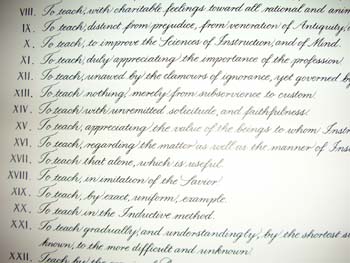 VIII. To teach, with charitable feelings toward all rational and anim
IX. To teach, distinct from prejudice, from veneration of Antiquity,
X. To teach, to improve the Sciences of Instruction, and of Mind.
XI. To teach, duly appreciating the importance of the profession.
XII. To teach, unawed by the clamours of ignorance, yet governed by
XIII. To teach nothing, merely from subservience to custom.
XIV. To teach with unremitted solicitude, and faithfulness.
XV. To teach, appreciating the value of the beings to whom Instr
XVI. To teach, regarding the matter as well as the manner of Ins
XVII. To teach that alone, which is useful.
XVIII. To teach, in imitation of the Savior.
XIX. To teach, by exact, uniform, example.
XX. To teach in the Inductive method.
XXI. To teach gradually, and understandingly, by the shortest s
known, to the more difficult and unknown.
XXII. Teach by the